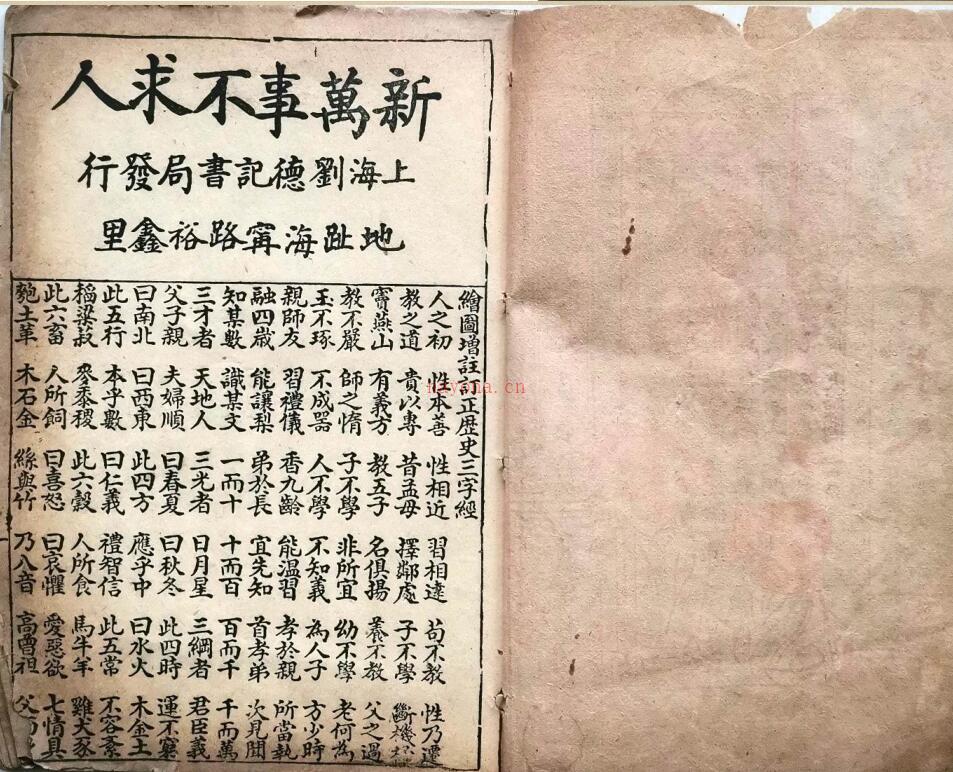 新萬事不求人
上海劉德記書局發行
地趾海甯路裕鑫里
繪圖增註訂正歷史三字經
人之初 性本善 性相近 習相遠 苟不教 性乃遷
教之道 貴以專 昔孟母 擇鄰處 子不學 斷機
竇燕山 有義方 教五子 名俱揚 養不教 父之過
教不嚴 師之惰 子不學 非所宜 幼不學 老何為
玉不琢 不成器 人不學 不知義 為人子 方少時
親師友 習禮儀 香九齡 能溫習 孝於親 所當執
融四歲 能讓梨 弟於長 宜先知 首孝弟 次見聞
知某數 識某文 一而十 十而百 百而千 千而萬
三才者 天地人 三光者 日月星 三綱者 君臣義
父子親 夫婦順 曰春夏 曰秋冬 此四時 運不窮
曰南北 曰西東 此四方 應乎中 曰水火 木金土
此五行 本乎數 曰仁義 禮智信 此五常 不容紊
稻粱菽 麥黍稷 此六穀 人所食 馬牛羊 雞犬豕
此六畜 人所飼 曰喜怒 曰哀懼 愛惡欲 七情具
匏土革 木石金 絲與竹 乃八音 高曾祖 父
nayona.cn